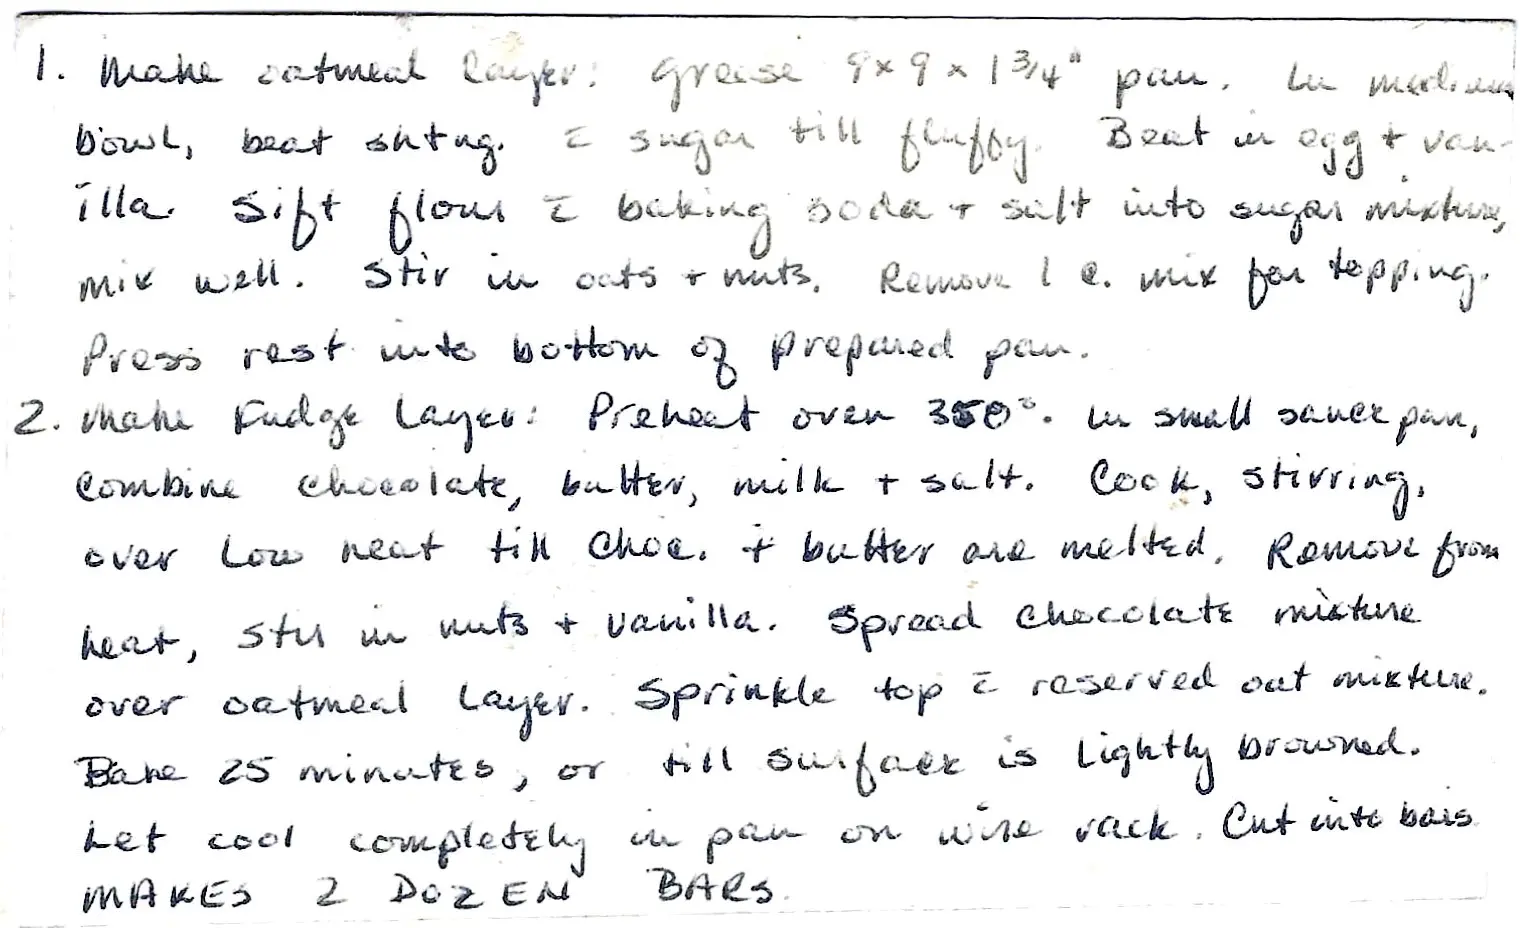 1. Make oatmeal layer: grease 9 x 9 x 1 3/4" pan. In medium
bowl, beat shtng. c̄ sugar till fluffy. Beat in egg + van-
illa. Sift flour c̄ baking soda + salt into sugar mixture,
mix well. Stir in oats + nuts. Remove 1 c. mix for topping.
Press rest into bottom of prepared pan.
2. Make Fudge Layer: Preheat oven 350°. In small saucepan,
Combine chocolate, butter, milk + salt. Cook, stirring,
over Low heat till Choc. + butter are melted. Remove from
heat, stir in nuts + vanilla. Spread Chocolate mixture
over oatmeal Layer. Sprinkle top c̄ reserved oat mixture.
Bake 25 minutes, or till surface is Lightly browned.
Let cool completely in pan on wire rack. Cut into bars
MAKES 2 DOZEN BARS.